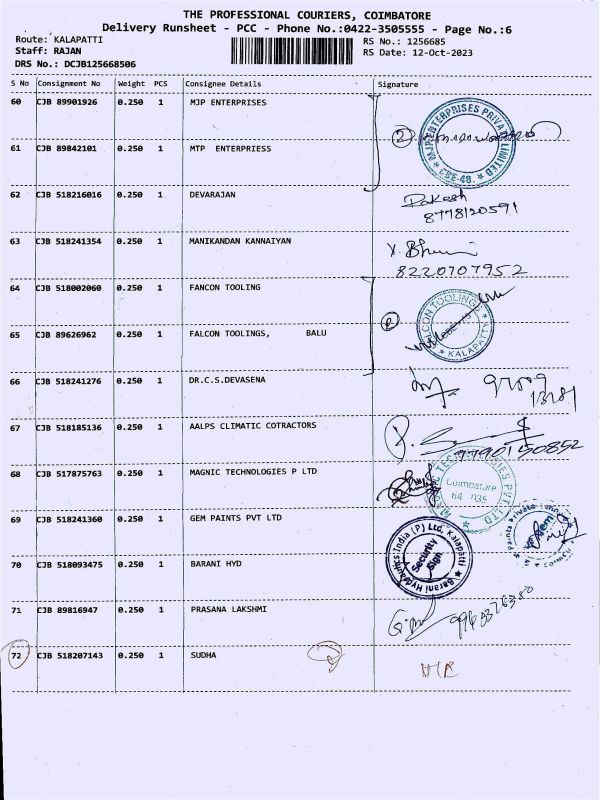 THE PROFESSIONAL COURIERS, COIMBATORE
Delivery Runsheet - PCC - Phone No.:0422-3505555 - Page No.:6
Route: KALAPATTI RS No.: 1256685
Staff: RAJAN RS Date: 12-Oct-2023
DRS No.: DCJB125668506
S No Consignment No Weight PCS Consignee Details Signature
60 CJB 89901926 0.250 1 MJP ENTERPRISES
2 MJP ENTERPRISES PRIVATE LIMITED * CBE-48. *
61 CJB 89842101 0.250 1 MTP ENTERPRIESS
62 CJB 518216016 0.250 1 DEVARAJAN Rakesh
8778120591
63 CJB 518241354 0.250 1 MANIKANDAN KANNAIYAN
8220707952
64 CJB 518002060 0.250 1 FANCON TOOLING
FALCON TOOLINGS * KALAPATTI *
65 CJB 89626962 0.250 1 FALCON TOOLINGS, BALU
66 CJB 518241276 0.250 1 DR.C.S.DEVASENA
67 CJB 518185136 0.250 1 AALPS CLIMATIC COTRACTORS
68 CJB 517875763 0.250 1 MAGNIC TECHNOLOGIES P LTD
Coimbatore
641 035
69 CJB 518241360 0.250 1 GEM PAINTS PVT LTD
Gem
70 CJB 518093475 0.250 1 BARANI HYD
Barani Hydraulics India (P) Ltd, Kalapatti
Security
Sign
71 CJB 89816947 0.250 1 PRASANA LAKSHMI
72 CJB 518207143 0.250 1 SUDHA